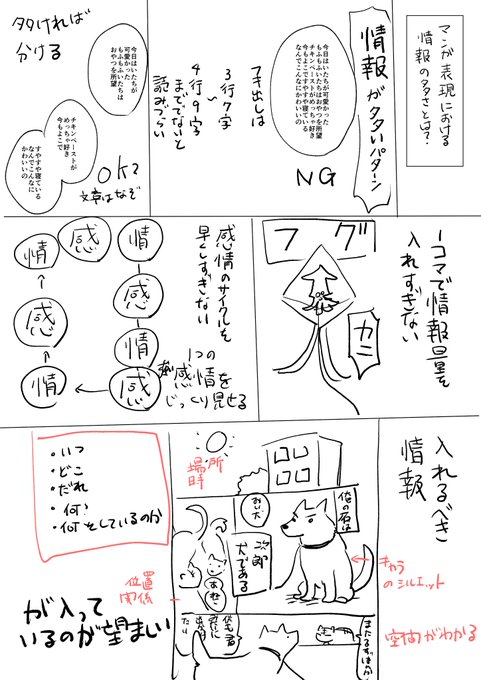 マンガ表現における
情報の多さとは？
情報が多いパターン
今日はいたちが可愛かった
もふもふいたちはおやつを所望
チキンペーストがめっちゃ好き
今もよこですやすや寝ている
なんでこんなにかわいいの
NG
フキ出しは
3行7字
〜
4行9字
まででないと
読みづらい
多ければ
分ける
今日はいたちが
可愛かった
もふもふいたちは
おやつを所望
チキンペーストが
めっちゃ好き
今もよこで
すやすや寝ている
なんでこんなに
かわいいの
OK?
文章はなぞ
1コマで情報量を
入れすぎない
フグ
カニ
感情のサイクルを
早くしすぎない
1つの
感情を
じっくり見せる
情
感
情
感
情
感
情
感
入れるべき
情報
俺の名は
次郎
犬である
おい犬
場所
時
きわう
のシルエット
位置
関係
空間がわかる
・いつ
・どこ
・だれ
・何？
・何をしているのか
が入って
いるのが望ましい